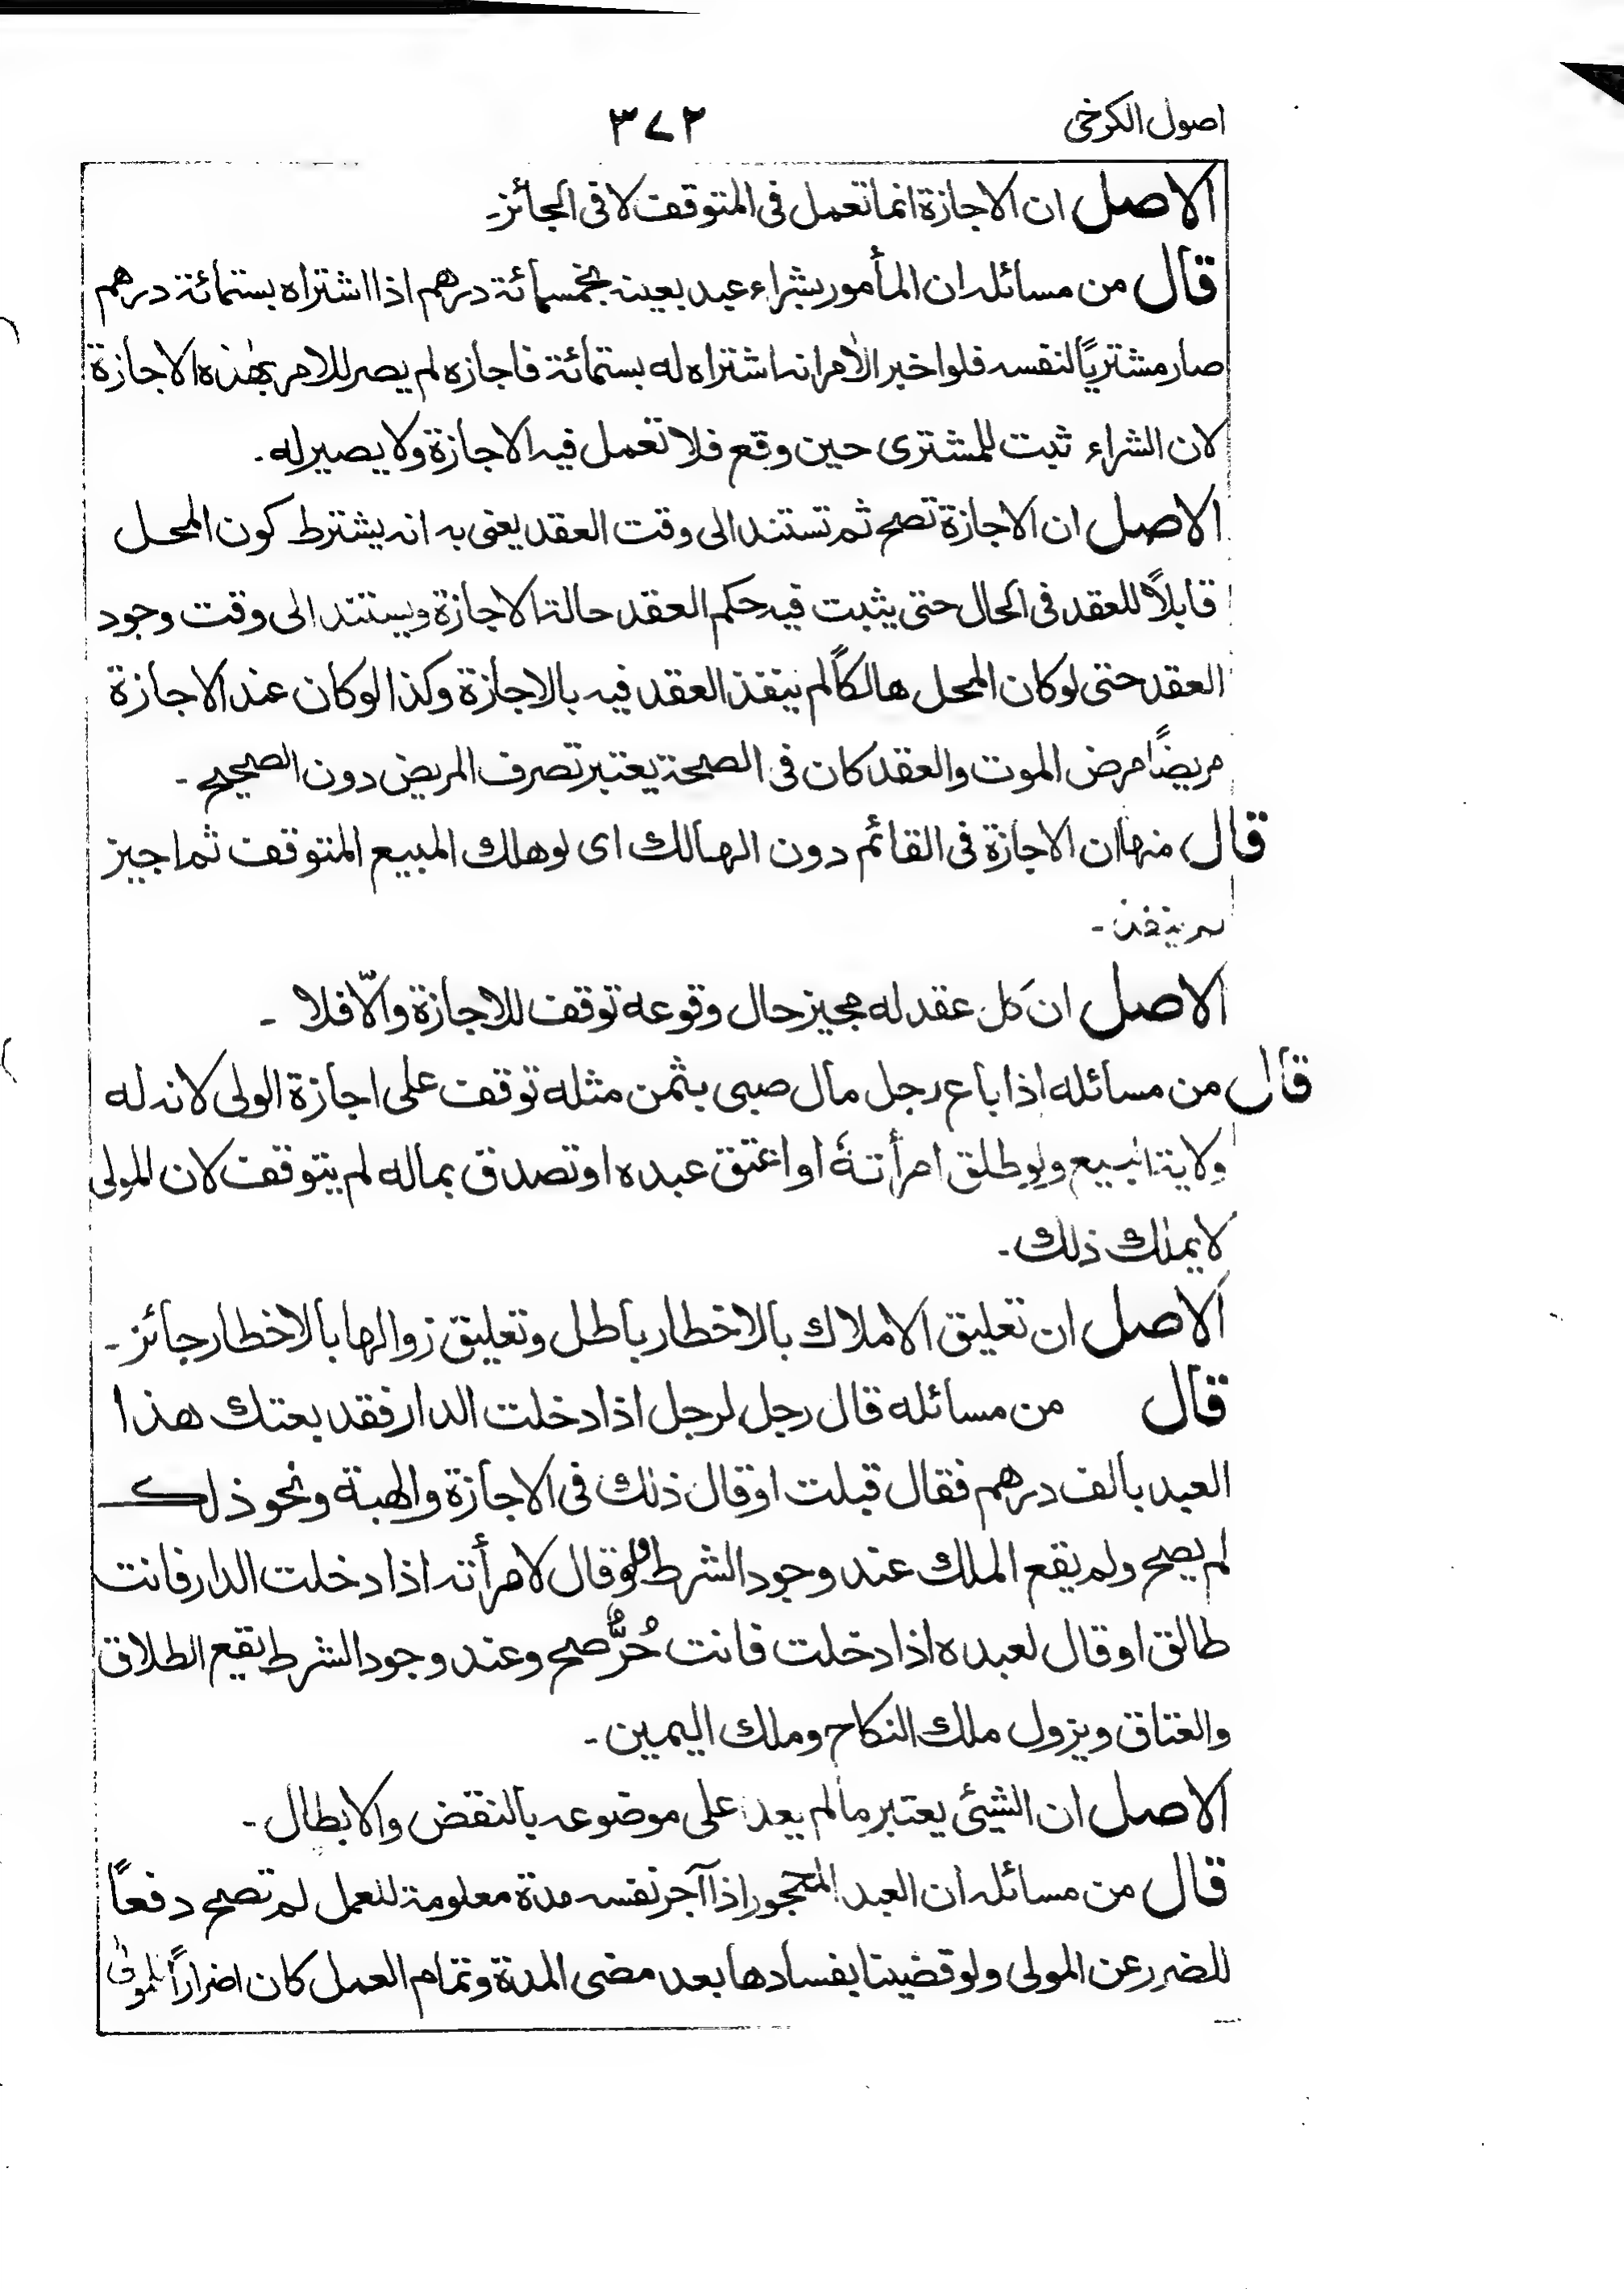 اصول الكرخى
٣٧٢
الاصل ان الاجازة انما تعمل فى المتوقف لا فى الجائز۔
قال من مسائله ان المأمور بشراء عبد بعينه بخمسمائة درهم اذا اشتراه بستمائة درهم
صار مشتريًا لنفسه فلو اخبر الاٰمر انه اشتراه له بستمائة فاجازه لم يصر للامر بهٰذه الاجازة
لان الشراء ثبت للمشترى حين وقع فلا تعمل فيه الاجازة ولا يصير له۔
الاصل ان الاجازة تصح ثم تستند الى وقت العقد يعنى به انه يشترط كون المحل
قابلاً للعقد فى الحال حتى يثبت فيه حكم العقد حالة الاجازة ويستند الى وقت وجود
العقد حتى لو كان المحل هالكاً لم ينفذ العقد فيه بالاجازة وكذا لو كان عند الاجازة
مريضًا مرض الموت والعقد كان فى الصحة يعتبر تصرف المريض دون الصحيح۔
قال منها ان الاجازة فى القائم دون الهالك اى لو هلك المبيع المتوقف ثم اجيز
لم ينفذ۔
الاصل ان كل عقد له مجيز حال وقوعه توقف للاجازة والّا فلا۔
قال من مسائله اذا باع رجل مال صبى بثمن مثله توقف على اجازة الولى لانه له
ولاية البيع ولو طلق امرأته او اعتق عبده او تصدق بماله لم يتوقف لان المولى
لا يملك ذلك۔
الاصل ان تعليق الاملاك بالاخطار باطل وتعليق زوالها بالاخطار جائز۔
قال من مسائله قال رجل لرجل اذا دخلت الدار فقد بعتك هذا
العبد بالف درهم فقال قبلت او قال ذلك فى الاجازة والهبة ونحو ذلك
لم يصح ولم يقع الملك عند وجود الشرط ولو قال لامرأته اذا دخلت الدار فانت
طالق او قال لعبده اذا دخلت فانت حُرٌّ صح وعند وجود الشرط يقع الطلاق
والعتاق ويزول ملك النكاح وملك اليمين۔
الاصل ان الشيئ يعتبر مالم يعد على موضوعه بالنقض والابطال۔
قال من مسائله ان العبد المحجور اذا آجر نفسه مدة معلومة لنعمل لم تصح دفعاً
للضرر عن المولى ولو قضينا بفسادها بعد مضى المدة وتمام العمل كان اضراراً بالمولى